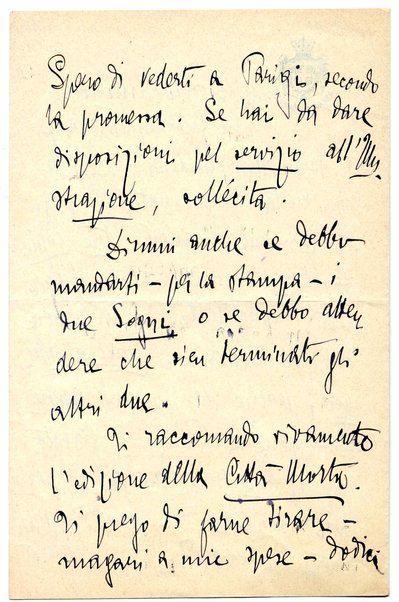 Spero di vederti a Parigi, secondo
la promessa. Se hai da dare
disposizioni pel servizio all'Illu-
strazione, sollécita.
Dimmi anche se debbo
mandarti – per la stampa – i
due Sogni, o se debbo atten
dere che sien terminati gli
altri due.
Ti raccomando vivamente
l'edizione della Città Morta.
Ti prego di farne tirare –
magari a mie spese – dodici